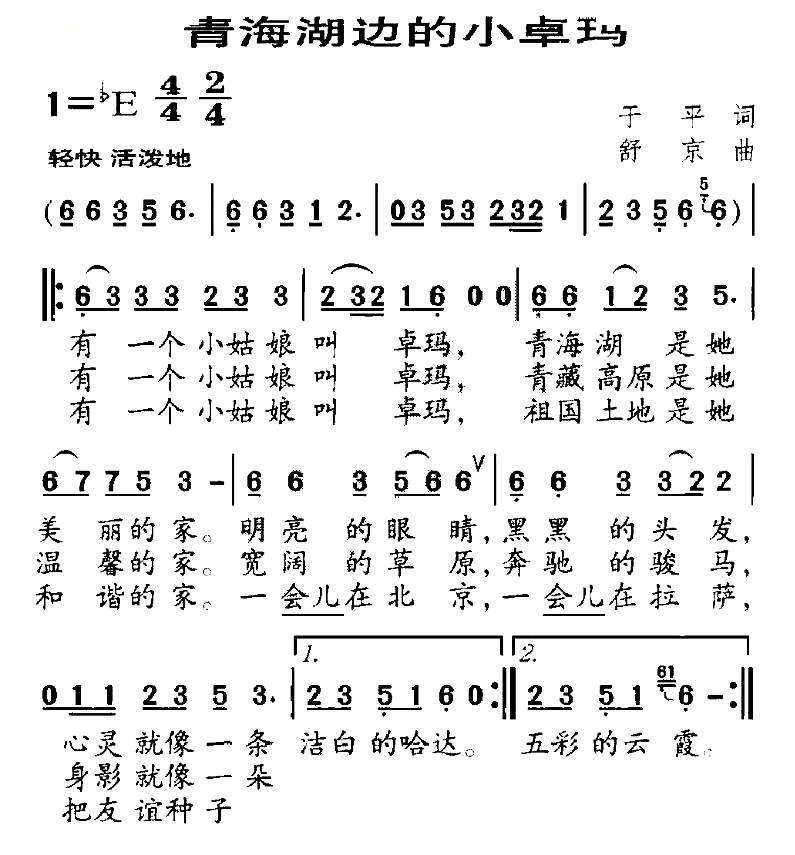 青海湖边的小卓玛
1=♭E 4/4 2/4
于 平 词
轻快 活泼地
舒 京 曲
(6 6 3 5 6. | 6 6 3 1 2. | 03 53 232 1 | 2 3 5 6 5 6) |
‖: 63 33 23 3 | 232 16 0 0 | 6 6 12 3 5. |
有 一个 小姑 娘 叫 卓玛, 青海 湖 是 她
有 一个 小姑 娘 叫 卓玛, 青藏 高原 是 她
有 一个 小姑 娘 叫 卓玛, 祖国 土地 是 她
67 75 3 - | 6 6 3 56 6 ∨ | 6 6 3 32 2 |
美 丽的 家。 明 亮 的 眼 睛, 黑 黑 的 头 发,
温 馨的 家。 宽 阔 的 草 原, 奔 驰 的 骏 马,
和 谐的 家。 一 会儿 在 北 京, 一 会儿 在 拉 萨,
1. 2.
011 23 5 3. | 23 51 60 :‖ 23 51 61 6 - :‖
心灵 就像 一 条 洁白 的哈 达。 五彩 的云 霞。
身影 就像 一 朵
把友 谊种 子